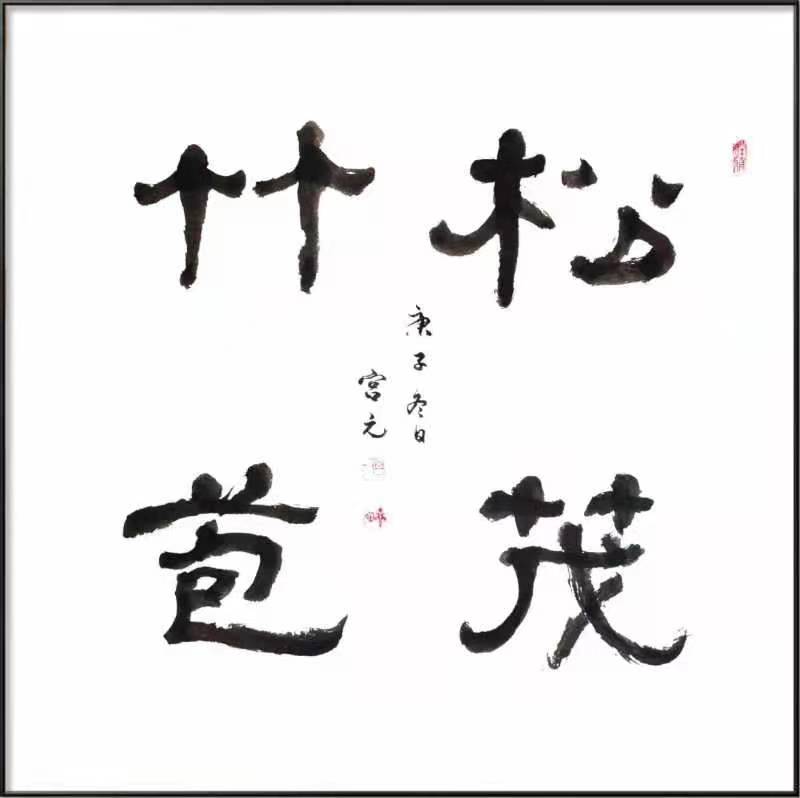 松茂
竹苞
庚子冬日
宫元